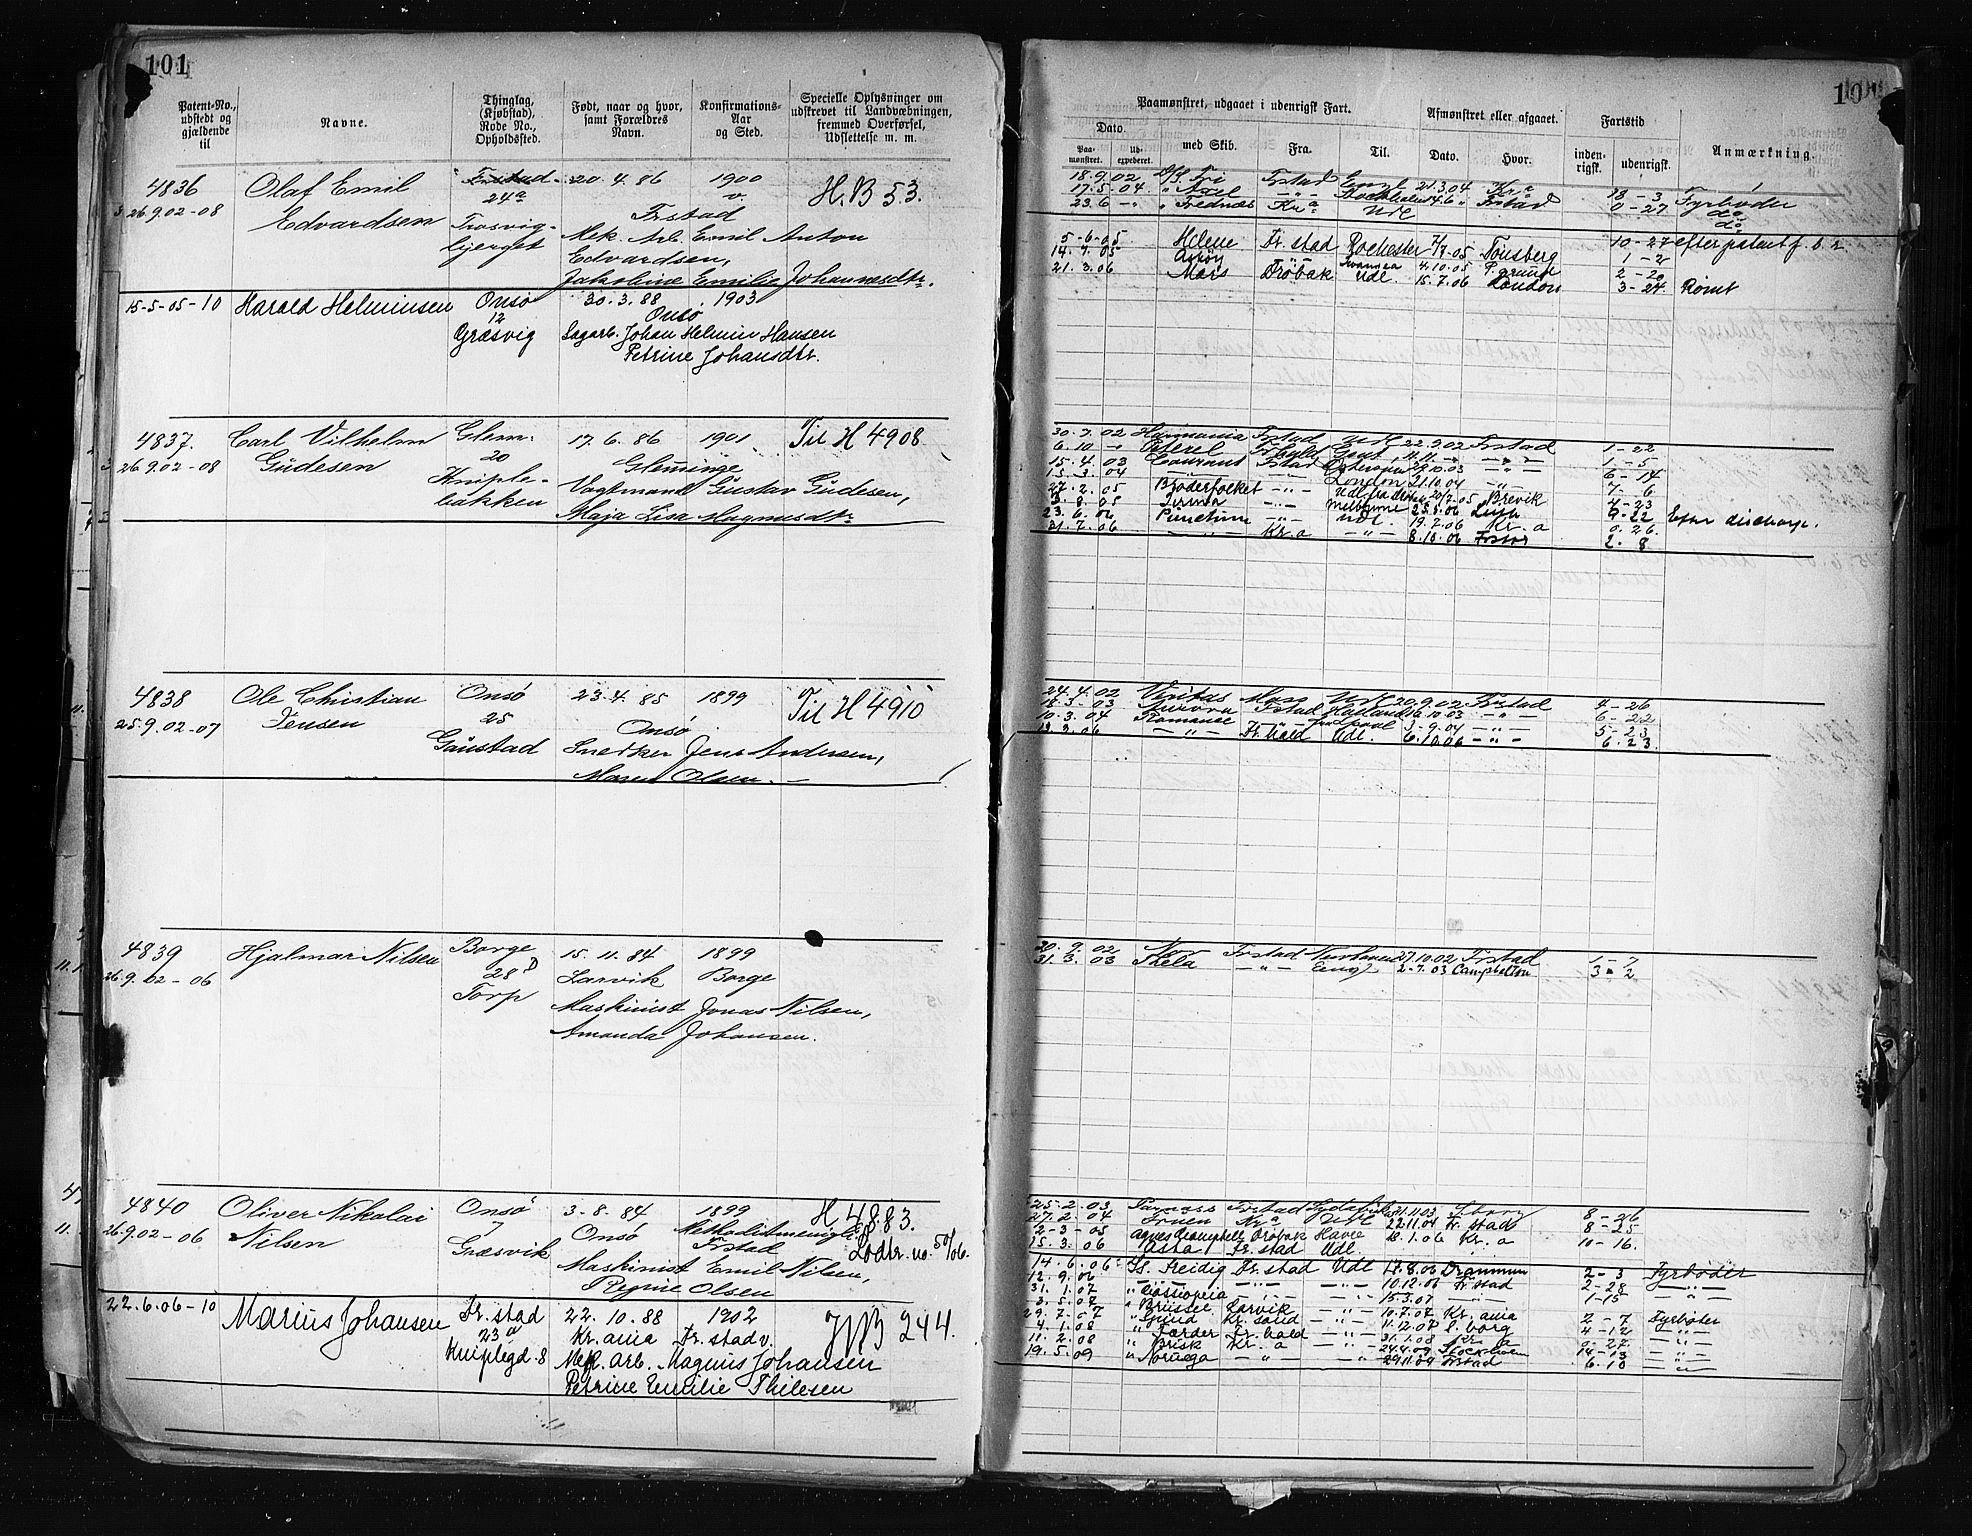 101
Patent-No., udstedt og gjældende til
Navne.
Thinglag, (Kjøbstad), Rode No., Opholdsfted.
Født, naar og hvor, samt Forældres Navn.
Konfirmations-Aar og Sted.
Specielle Oplysninger om udskrevet til Landvædningen, fremmed Overførsel, Udslettelse m. m.
4836 Olaf Emil Frstad 20.4.86 1900 H.B 53.
26.9.02-08 Edvardsen 24a v.
Trosvig- Frstad
bjerget Mek. Arb. Emil Anton
Edvardsen,
Jakobine Emilie Johannesdtr.
15-5-05-10 Harald Helminsen Onsø 30.3.88 1903
12 Onsø
Græsvig Sagarb. Johan Helmin Hansen
Petrine Johansdtr.
4837. Carl Vilhelm Glem- 17.6.86 1901 Til H 4908
26.9.02-08 Gudesen 20 Glemminge
Kniple- Vagtmand Gustav Gudesen,
bakken Maja Lisa Magnusdtr
4838 Ole Christian Onsø 23.4.85 1899 Til H 4910
25.9.02-07 Jensen 25 Onsø
Gaustad Snedker Jens Andersen,
Maren Olsen.
4839 Hjalmar Nilsen Borge 15.11.84 1899
26.9.02-06 28 D Larvik Borge
Torp Maskinist Jonas Nilsen,
Amanda Johansen.
4840 Oliver Nikolai Onsø 3.8.84 1899 H 4883.
26.9.02-06 Nilsen 7 Onsø Methodistmenigh.
Græsvik Frstad Lodtr. no. 50/06.
Maskinist Emil Nilsen,
Regine Olsen
22.6.06-10 Marius Johansen Fr.stad 22.10.88 1902 HB 244.
23 a Kr.ania Fr.stad v.
Kniplegd-8 Mek. arb. Magnus Johansen
Petrine Emilie Thilesen
10
Paamønstret, udgaaet i udenrigsk Fart.
Afmønstret eller afgaaet.
Fartstid
Dato.
Paa-mønstret. Ux-expederet. med Skib. Fra. Til. Dato. Hvor. inden-rigsk. udenrigsk. Anmærkning.
18.9.02 Tri Frstad 21.3.04 Kra 18-3 Fyrbøder
17.5.04 " Axel -"- Stockholm 14.6 " Frstad 0-27 do
23.6 -"- " Frednæs Kra Udl do
5-6-05 Helene Fr.stad Rochester 7/7 05 Tønsberg 10-27 efter patent f. b. 2.
14.7.05 Askøy -"- Swansea 4.10.05 P.grund 1-2
21.3.06 Mars Drøbak Udl. 15.7.06 London 2-20
3-24 Rømt
30.7.02 Harmonia Frstad Udl 22.9.02 Frstad 1-22
6.10 -"- Peterel Frhald Gent 11.11 -"- -"- 1-5
15.4.03 Courant Frstad 29.10.03 -"- 6-14
15.3.04 London 21.10.04 -"- 7-6
27.2.05 Broderfolket -"- 20/7.05 Brevik 4-23
3.8.05 -"- Melbourne 25.5.06 Leith 9-22 Efter discharge.
23.6.06 Punctum -"- Udl. 19.7.06 Kr.a 0.26.
31.7.06 -"- Kr.a -"- 8.10.06 Frstad 2.8
24.4.02 Veritas Moss Udl 20.9.02 Frstad 4-26
18.3-03 Aurora Frstad 16.10.03 -"- 6-22
10.3.04 Romanoe -"- 3-9.04 -"- 5-23
13.3.06 -"- Fr.hald Udl. 6.10.06 -"- 6.23.
30.9.02 Frstad 27.10.02 Frstad 1-7
31.3.03 Thela -"- Engl. 2-7.03 Campbelton 3-2
25-2-03 Parnass Frstad 21.11.03 S.borg 8-26
27.2.04 Fruen Kra Udl 22.11.04 Fr.stad 8-25
2-3-05 Agnes Campbell Drøbak Havre 18.1.06 Kr.a 10-16.
15.3.06 Asta Fr.stad Udl.
14.6.06 Ss. Freidig Fr.stad Udl 17.8.06 Drammen 2-3 Fyrbøder
12.9.06 -"- -"- -"- 10.12.06 Frstad 2-28 -"-
31.1.07 " Cassiopeia -"- -"- 15.3.07 -"- 1-15 "
3.5.07 " Brüssel Larvik -"- 10.7.07 Kr.ania 2-7 Fyrbøter
29.7.07 Kr.sand -"- 11.12.07 S.borg 4-12 -"-
4.1.08 " Færder Fr.hald -"- 31.1.08 Kr.a 0-27. -"-
11.2.08 " Brisk Kr.a -"- 24.4.09 Stockholm 14-13 -"-
19.5.09 " Norwega -"- -"- 29.11.09 Frstad 6-10 -"-